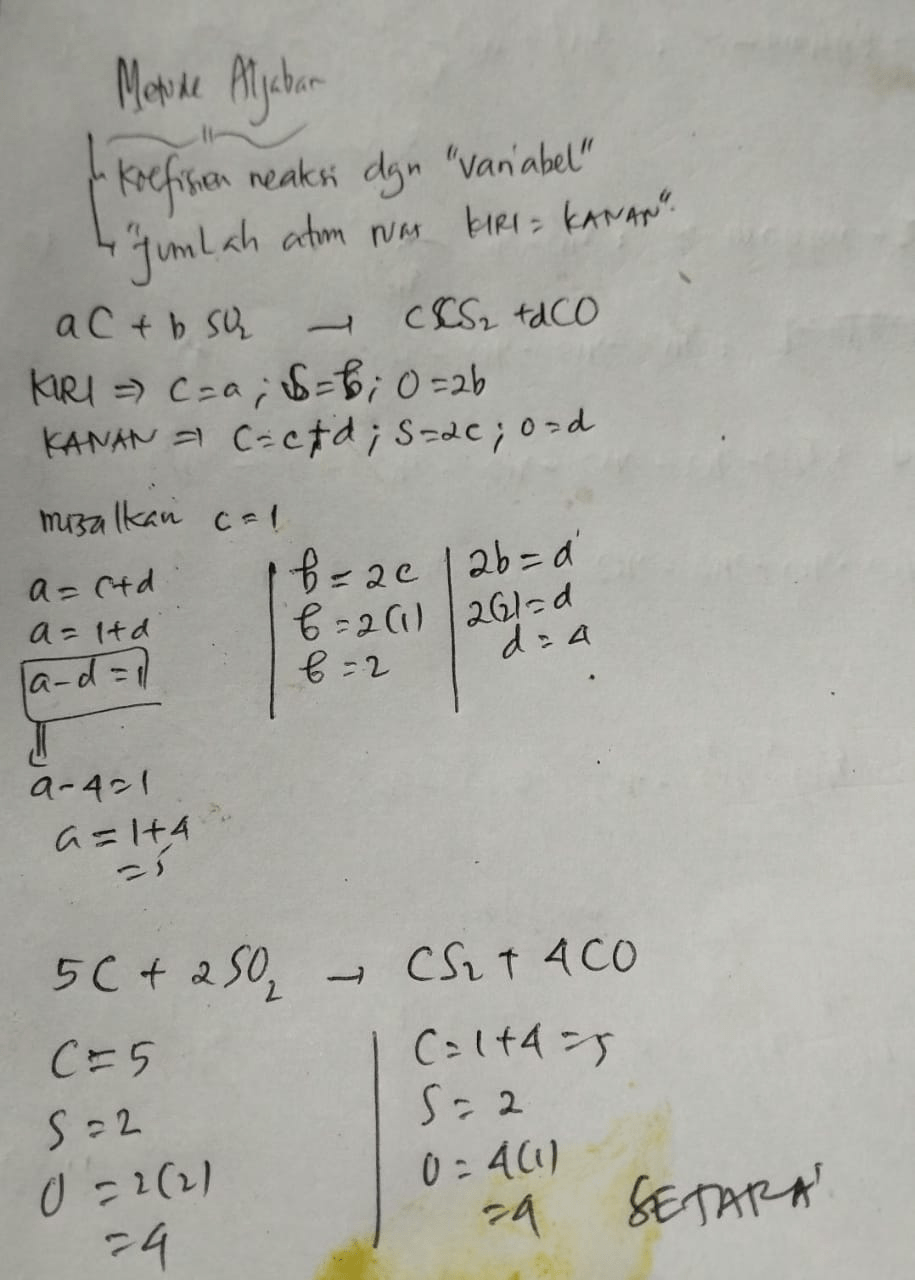 Metode Aljabar
koefisien reaksi dgn "variabel"
"jumlah atom ruas KIRI = KANAN".
aC + b SO₂ → cCS₂ + dCO
KIRI ⇒ C = a ; S = b ; O = 2b
KANAN ⇒ C = c + d ; S = 2c ; O = d
misalkan c = 1
a = c+d
a = 1+d
a-d = 1
b = 2c
b = 2(1)
b = 2
2b = d
2(2) = d
d = 4
a-4 = 1
a = 1+4
= 5
5C + 2SO₂ → CS₂ + 4CO
C = 5
S = 2
O = 2(2)
= 4
C = 1+4 = 5
S = 2
O = 4(1)
= 4
SETARA